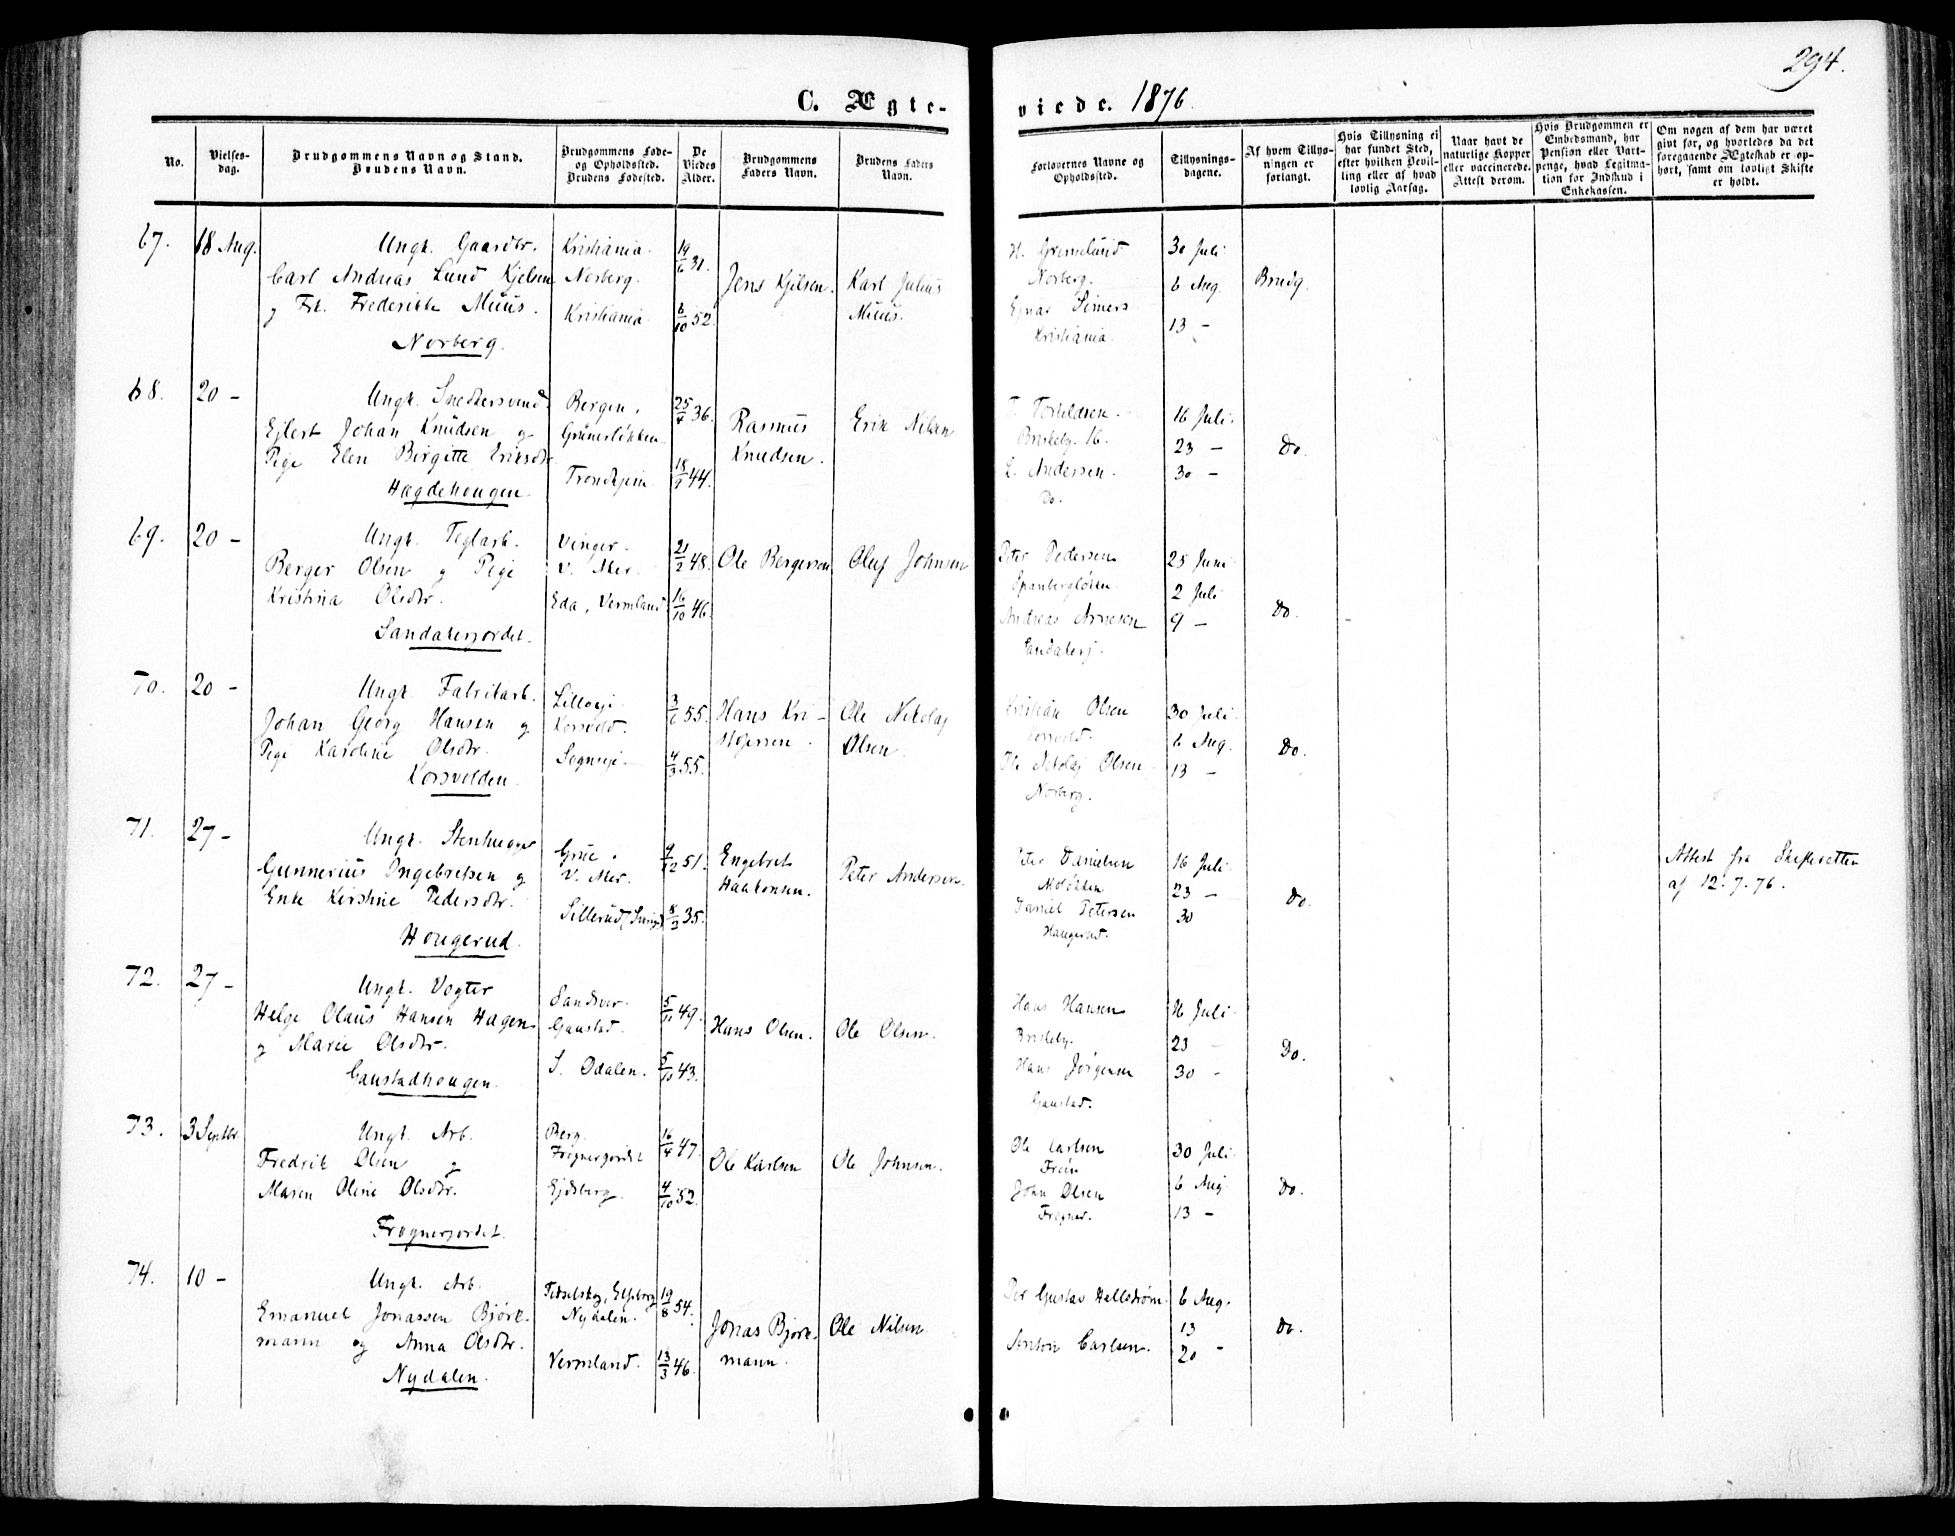 294.
C. Ægteviede. 1876.
No.
Vielsesdag.
Brudgommens Navn og Stand. Brudens Navn.
Brudgommens Føde- og Opholdssted. Brudens Fødested.
De Viedes Alder.
Brudgommens Faders Navn.
Brudens Faders Navn.
Forlovernes Navne og Opholdssted.
Tillysningsdagene.
Af hvem Tillysningen er forlangt.
Hvis Tillysning ei har fundet Sted, efter hvilken Bevilling eller af hvad lovlig Aarsag.
Naar havt de naturlige Kopper eller vaccinerede. Attest derom.
Hvis Brudgommen er Embedsmand, har Pension eller Vartpenge, hvad Legitimation for Indskud i Enkekassen.
Om nogen af dem har været givt før, og hvorledes da det foregaaende Ægteskab er ophørt, samt om lovligt Skifte er holdt.
67. 18 Aug. Ungk. Gaardbr.
Carl Andreas Lund Kjelsen
og Frk. Frederikke Muus.
Norberg.
Kristiania.
Norberg.
Kristiania.
19/6 31.
6/10 52.
Jens Kjelsen.
Karl Julius
Muus.
H. Grønnlund
Norberg.
Ejnar Simers
Kristiania.
30 Juli
6 Aug.
13 –
Brudg.
68. 20 – Ungk. Snedkersvend
Ejlert Johan Knudsen og
Pige Elen Birgitte Eriksdtr.
Hægdehougen.
Bergen.
Grünerløkken.
Trondhjem
25/4 36.
18/2 44.
Rasmus
Knudsen.
Erik Nilsen
T. Torkildsen.
Briskeby. 16.
L. Andersen.
Do.
16 Juli.
23 –
30 –
Do.
69. 20 – Ungk. Teglarb.
Berger Olsen og Pige
Kristina Olsdtr.
Sandakerjordet.
Vinger.
V. Aker.
Eda, Vermland
21/2 48.
16/10 46.
Ole Bergersen
Oluf Johnsen
Peter Pedersen
Spanbergløkken.
Andreas Arnesen
Sandakerj.
25 Juni
2 Juli
9 –
Do.
70. 20 – Ungk. Fabrikarb.
Johan Georg Hansen og
Pige Karoline Olsdtr.
Korsvolden.
Lilloeje.
Korsvold.
Sognseje
3/6 55.
4/3 55.
Hans Kristofersen.
Ole Nikolaj
Olsen.
Kristian Olsen
Korsvold.
Ole Nikolaj Olsen.
Norberg.
30 Juli.
6 Aug.
13 –
Do.
71. 27 – Ungk. Stenhugger
Gunnerius Ingebretsen og
Enke Kirstine Pedersdtr.
Hougerud.
Grue.
V. Aker.
Sillerud, (Sverige)
9/12 51.
8/3 35.
Engebret
Haakonsen.
Peter Andersen.
Peter Danielsen
Daniel Petersen
Haugerud.
16 Juli.
23 –
30
Do.
Attest fra Skifteretten
af 12.7.76.
72. 27 – Ungk. Vogter
Helge Olaus Hansen Hagen
og Maren Olsdtr.
Gaustadhougen.
Sandsvær.
Gaustad.
S. Odalen.
5/11 49.
5/10 43.
Hans Olsen.
Ole Olsen.
Hans Hansen
Briskeby.
Hans Jørgensen
Gaustad.
16 Juli.
23 –
30 –
Do.
73. 3 Septbr. Ungk. Arb.
Fredrik Olsen og
Maren Oline Olsdtr.
Frognerjordet.
Berg.
Frognerjordet
Ejdsberg.
16/4 47.
4/10 52.
Ole Karlsen
Ole Johnsen.
Ole Karlsen
John Olsen
Frogner.
30 Juli.
6 Aug
13 –
Do.
74. 10 – Ungk. Arb.
Emanuel Jonassen Bjørkmann og Anna Olsdtr.
Nydalen.
Tidselskog, Elfsborg
Nydalen.
Vermland.
19/8 54.
13/3 46.
Jonas Bjørkmann.
Ole Nilsen
Per Gustav Hellstrøm.
Anton Carlsen.
6 Aug.
13
20 –
Do.